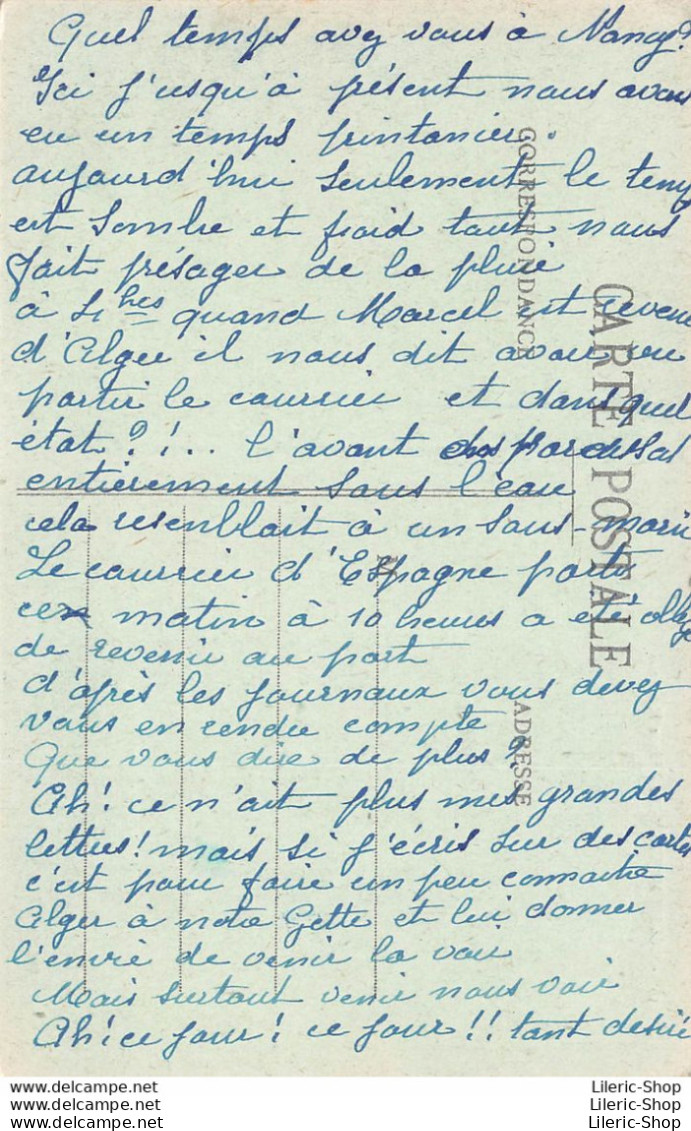 Quel temps avez vous à Nancy?
Ici j'usqu'à présent nous avons
eu un temps printanier.
aujourd'hui seulement le temps
est sombre et froid tout nous
fait présager de la pluie
à 4 hes quand Marcel est revenu
d'Alger il nous dit avoir vu
partir le courrier et dans quel
état?!.. l'avant
entièrement sous l'eau
cela resemblait à un sous-marin
Le courrier d'Espagne partit
ce matin à 10 heures a été oblige
de revenir au port
d'après les journaux vous devez
vous en rendre compte
Que vous dire de plus?
Ah! ce n'ait plus mes grandes
lettres! mais si j'écris sur des cartes
c'est pour faire un peu connaitre
Alger à notre Gette et lui donner
l'envie de venir la voir
Mais surtout venir nous voir
Ah! ce jour! ce jour!! tant desiré
CORRESPONDANCE
CARTE POSTALE
ADRESSE
www.delcampe.net Lileric-Shop
www.delcampe.net Lileric-Shop
www.delcampe.net Lileric-Shop